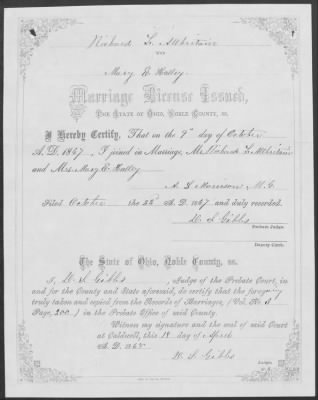 Richard L. Allbritain
WITH
Mary E. Kelley
Marriage License Issued,
THE STATE OF OHIO, NOBLE COUNTY, SS.
I Hereby Certify, That on the 9th day of October
A. D. 1867, I joined in Marriage, Mr. Richard L. Allbritain
and Mrs. Mary E. Kelley
A. D. Morrison M. G.
Filed October the 22d A. D. 1867 and duly recorded.
W. S. Gibbs
Probate Judge.
Deputy Clerk.
The State of Ohio, Noble County, SS.
I, W. S. Gibbs, Judge of the Probate Court, in
and for the County and State aforesaid, do certify that the foregoing
truly taken and copied from the Records of Marriages, (Vol. No.
Page, 200) in the Probate Office of said County.
Witness my signature and the seal of said Court
at Caldwell, this 18 day of April
A. D. 1868
W. S. Gibbs
Judge.